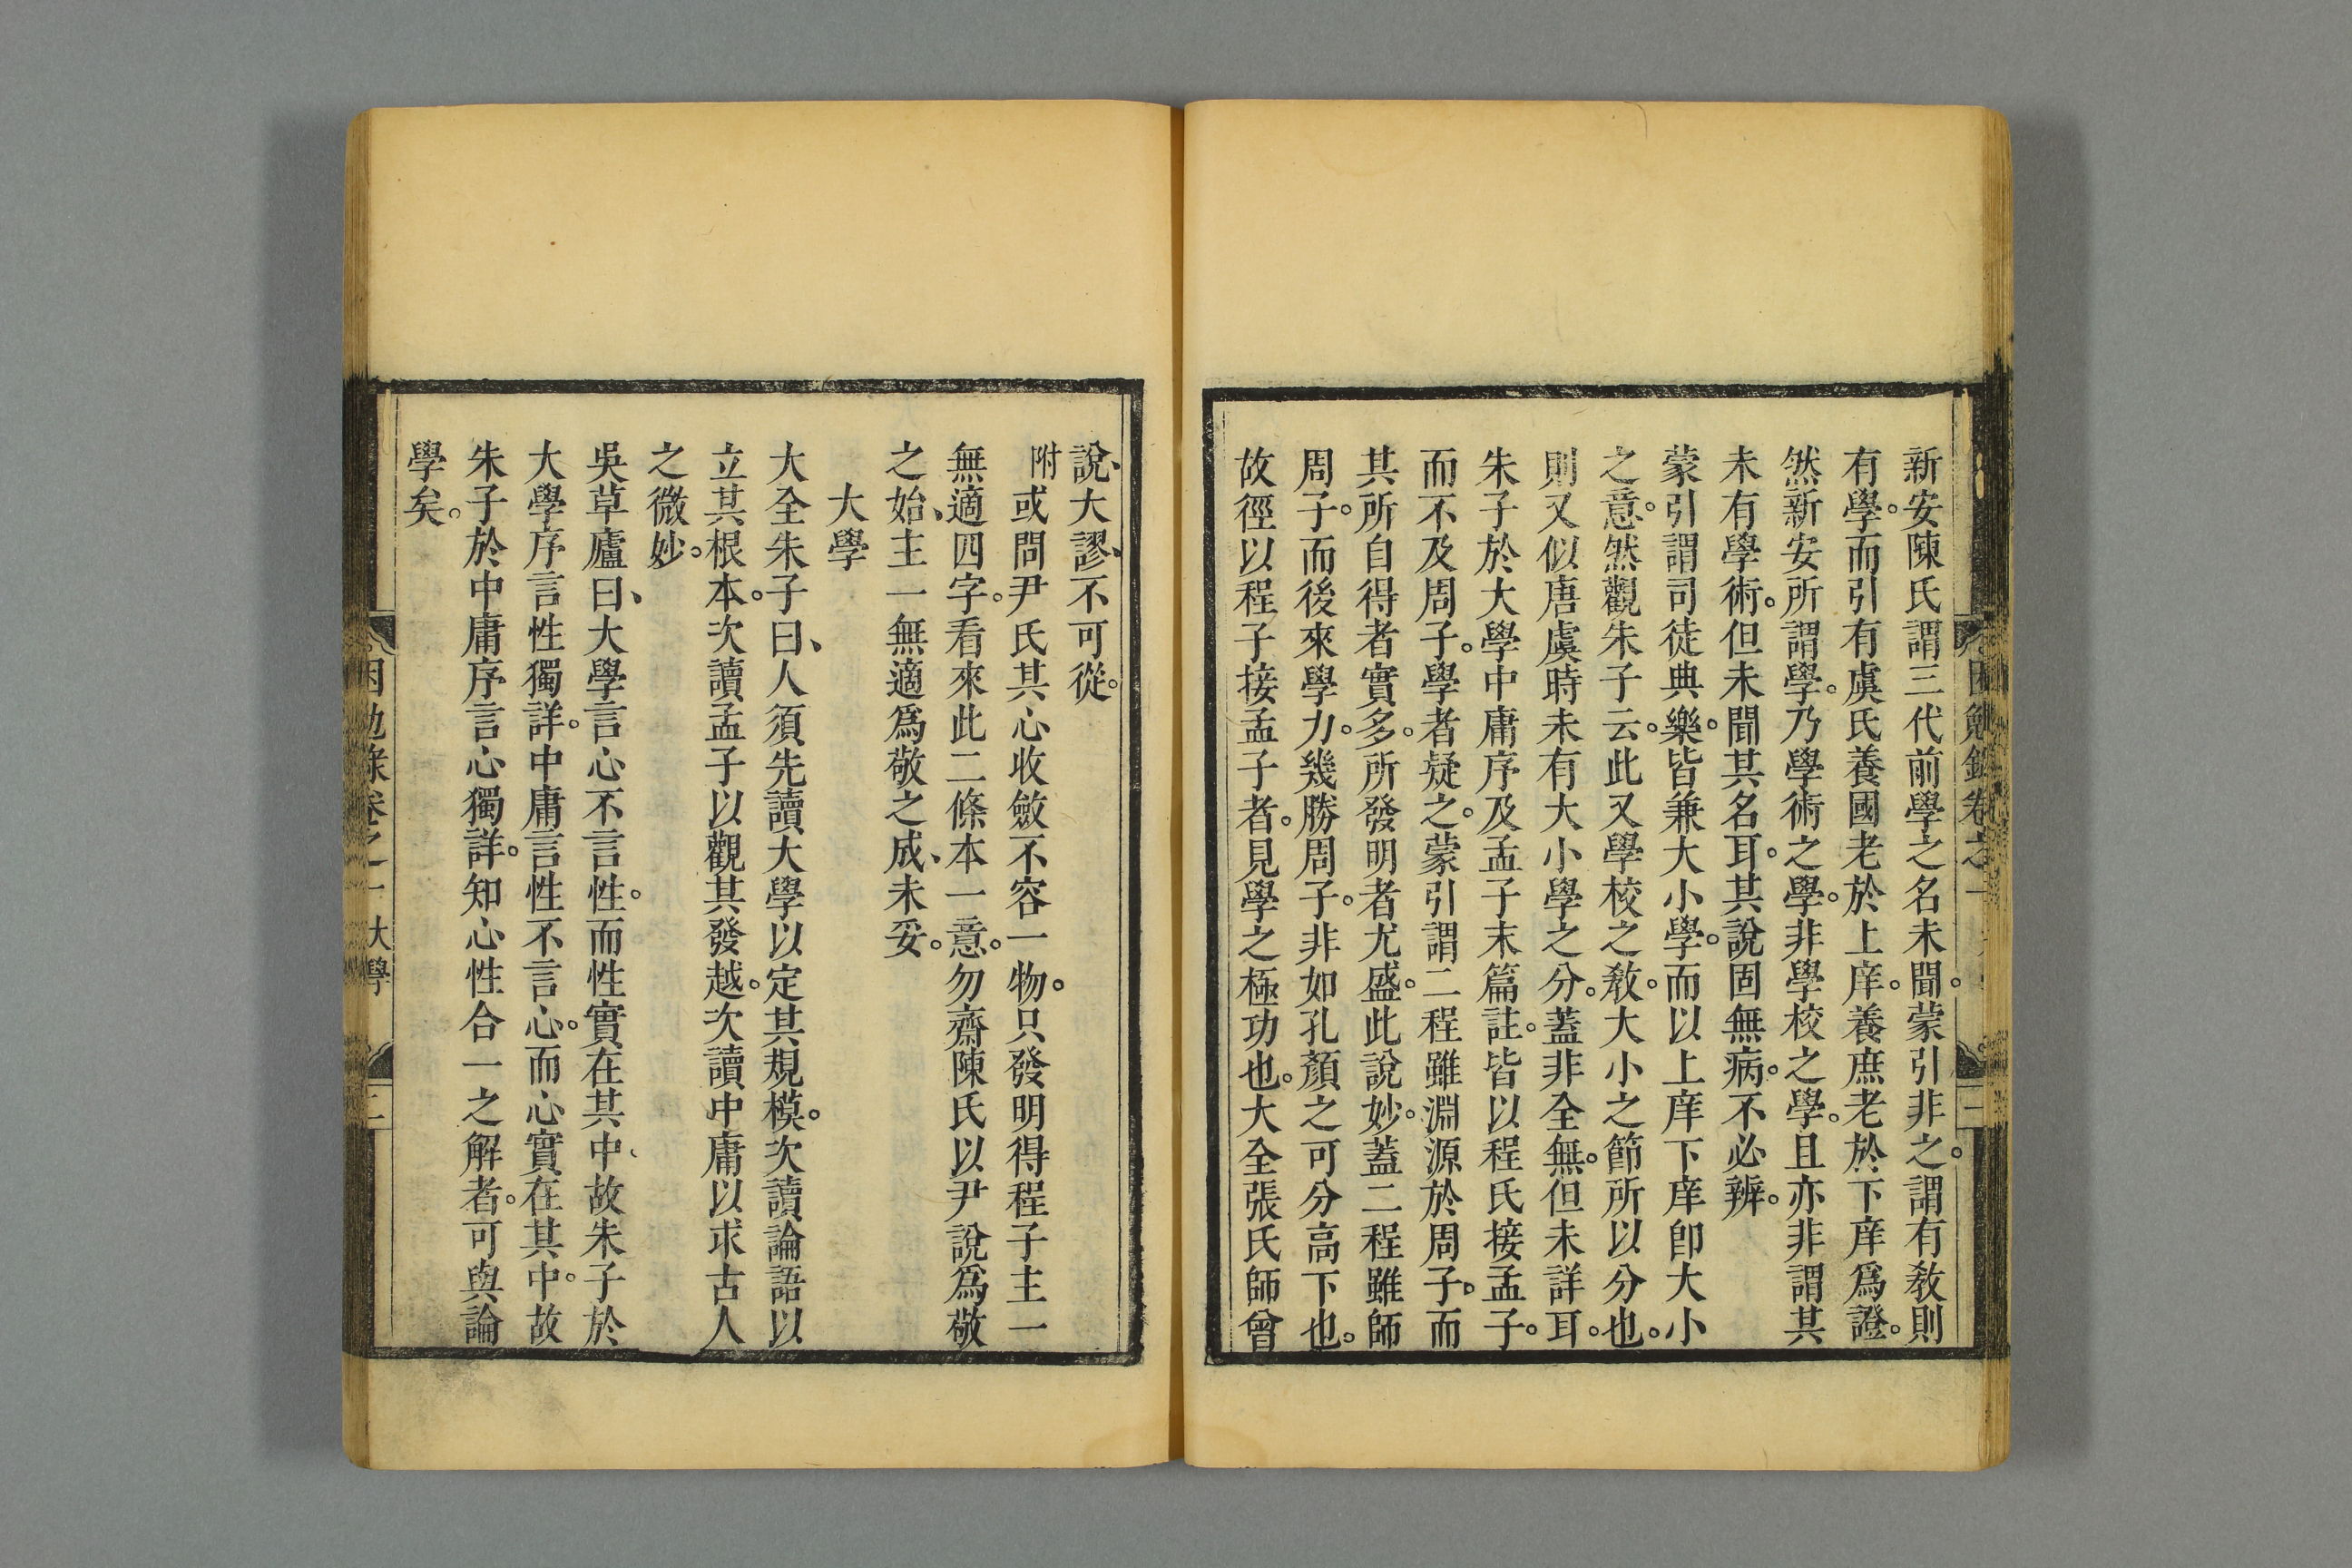 新安陳氏謂三代前學之名未聞。蒙引非之。謂有敎則
有學。而引有虞氏養國老於上庠。養庶老於下庠爲證。
然新安所謂學。乃學術之學。非學校之學。且亦非謂其
未有學術。但未聞其名耳。其說固無病。不必辨。
蒙引謂司徒典樂。皆兼大小學。而以上庠下庠卽大小
之意。然觀朱子云。此又學校之敎。大小之節所以分也。
則又似唐虞時未有大小學之分。蓋非全無。但未詳耳。
朱子於大學中庸序及孟子末篇註。皆以程氏接孟子。
而不及周子。學者疑之。蒙引謂二程雖淵源於周子。而
其所自得者實多。所發明者尤盛。此說妙。蓋二程雖師
周子。而後來學力。幾勝周子。非如孔顏之可分高下也。
故徑以程子接孟子者。見學之極功也。大全張氏師曾
困勉錄卷之一
說、大謬、不可從。
附或問尹氏其心收斂不容一物。只發明得程子主一
無適四字。看來此二條本一意。勿齋陳氏以尹說爲敬
之始、主一無適爲敬之成、未妥。
大學
大全朱子曰、人須先讀大學以定其規模。次讀論語以
立其根本。次讀孟子以觀其發越。次讀中庸以求古人
之微妙。
吳草廬曰、大學言心不言性。而性實在其中、故朱子於
大學序言性獨詳。中庸言性不言心。而心實在其中。故
朱子於中庸序言心獨詳。知心性合一之解者。可與論
學矣。
困勉錄卷之一 大學 二